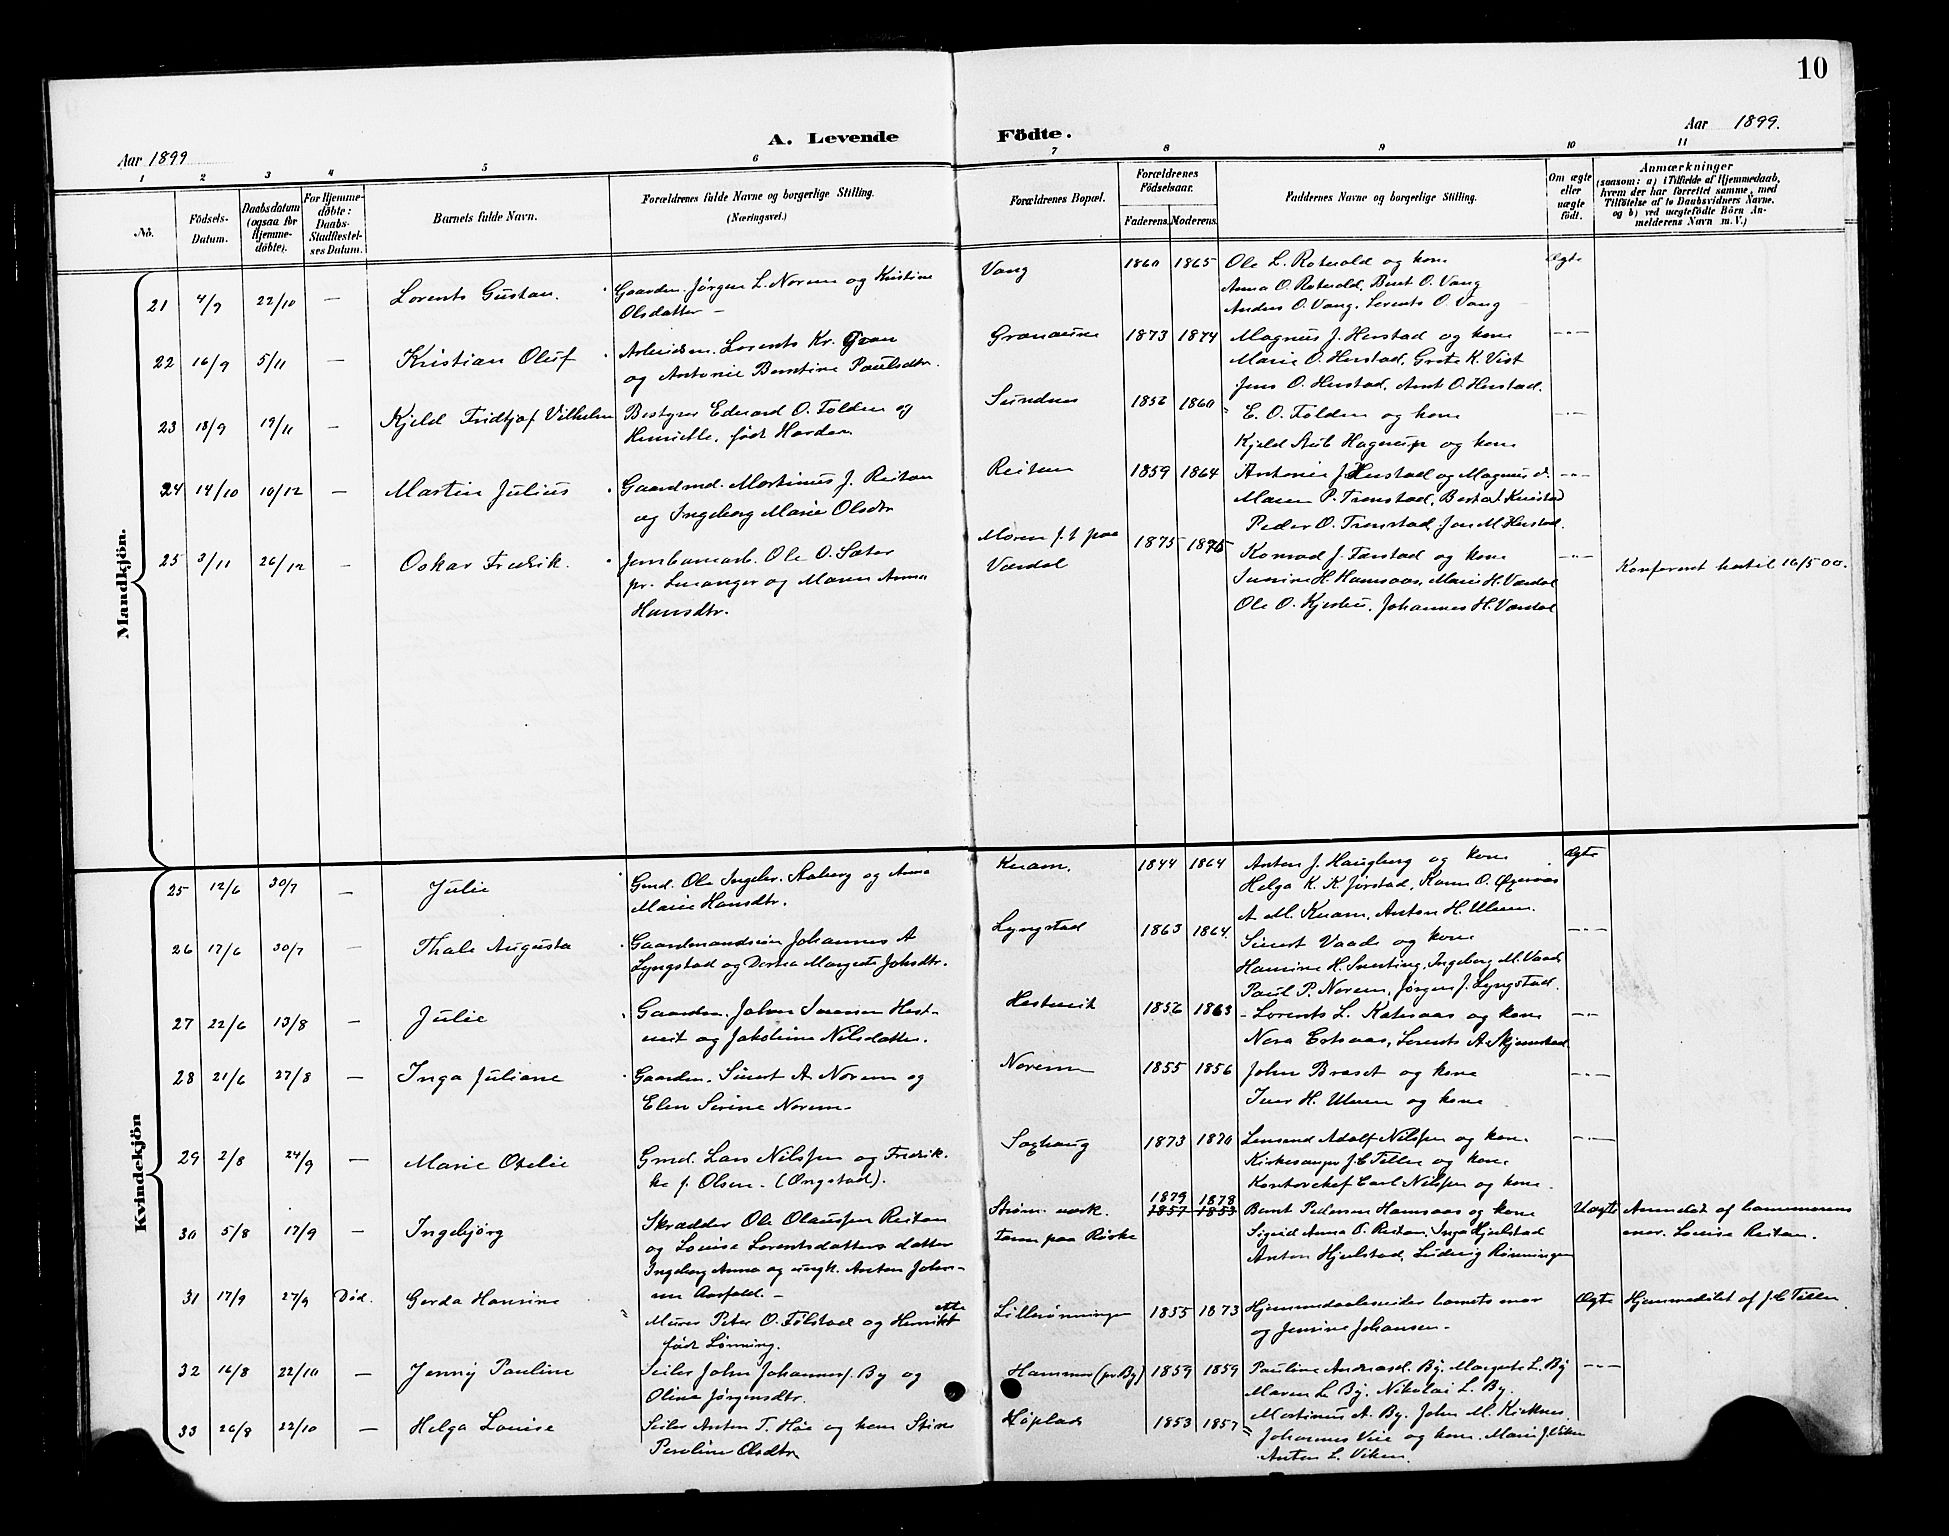 10
A. Levende Födte.
Aar 1899
Aar 1899.
1 2 3 4 5 6 7 8 9 10 11
No.
Födsels-Datum.
Daabsdatum (ogsaa for Hjemmedøbte).
For Hjemmedøbte: Daabs-Stadfæstelses Datum.
Barnets fulde Navn.
Forældrenes fulde Navne og borgerlige Stilling. (Næringsvei.)
Forældrenes Bopæl.
Forældrenes Födselsaar.
Faderens. Moderens.
Faddernes Navne og borgerlige Stilling.
Om ægte eller uægte födt.
Anmærkninger
(saasom: a) i Tilfælde af Hjemmedaab, hvem der har forrettet samme, med Tilföielse af to Daabsvidners Navne, og b) ved uægtefödte Börn Anmelderens Navn m. V.)
Mandkjön.
21 4/9 22/10 — Lorents Gustav. Gaardm. Jørgen L. Norem og Kristine
Olsdatter —
Vang 1860 1865 Ole L. Rotvold og kone Ægte
Anna O. Rotvold, Bernt O. Vang
Anders O. Vang, Lorents O. Vang
22 16/9 5/11 — Kristian Oluf Arbeidsm. Lorents Kr. Gran
og Antonie Berntine Paulsdtr.
Granaune 1873 1874 Magnus J. Herstad og kone —"—
Marie O. Herstad, Grete K. Vist
Jens O. Herstad, Arnt O. Herstad.
23 18/9 19/11 — Kjeld Fridtjof Vilhelm Bestyrer Edvard O. Følden og
Henriette, født
Sundnes 1856 1860 E. O. Følden og kone —"—
Kjeld Stub Hagerup og kone
24 14/10 10/12 — Martin Julius Gaardmd. Martinus J. Reitan
og Ingeborg Marie Olsdtr
Reitan 1859 1864 Antonie J. Herstad og Magnus do. —"—
Maren P. Tronstad,
Peder O. Tronstad, Jon M. Herstad.
25 3/11 26/12 — Oskar Fredrik. Jernbanearb. Ole O. Sæter
pr. Levanger og Maren Anna
Hansdtr.
Moren f. t. paa
Værdal
1875 1875 Konrad J. Førstad og kone —"—
H. Hamsaas, Marie H. Værdal
Ole O. Kjesbu, Johannes H. Værdal
Konferent hertil 16/5 00.
Kvindekjön
25 12/6 30/7 — Julie Gmd. Ole Ingebr. Aaberg og Anna
Marie Hansdtr.
Kvam. 1844 1864 Anton J. Haugberg og kone Ægte
Helga K. K. Jørstad, Karen O.
A. M. Kvam, Anton H. Ulven.
26 17/6 30/7 — Thale Augusta Gaardmandssøn Johannes A
Lyngstad og Dortea Margrete Johsdtr.
Lyngstad 1863 1864. Sivert Vaade og kone —"—
Hansine H. Ingeborg M. Vaade
Paul P. Norem, Jørgen J. Lyngstad.
27 22/6 13/8 — Julie Gaardm. Johan Hest-
veit og Jakobine Nilsdatter.
Hestveit 1856 1863 Lorents L. og kone —"—
Nora Lorents A. Skjemstad
28 21/6 27/8 — Inga Juliane Gaardm. Sivert A. Norem og
Elen Serine Norem—
Norem 1855 1856 John Braset og kone —"—
Iver H. Ulven og kone
29 2/8 24/9 — Marie Otelie Gmd. Lars Nilssen og Fredrik-
ke f. Olsen. (Øngstad).
Saxhaug 1873 1870 Lensmd Adolf Nilssen og kone —"—
Kirkesanger J. C. Teller og kone
Kontorchef Carl Nilssen og kone
30 5/8 17/9 — Ingebjörg Skrædder Ole Olaussen Reitan
og Louise Lorentsdatters datter
Ingeborg Anna og ungk. Anton Johan-
sen Aasfald. —
1879 1878
1857 1853 Bernt Pedersen Hamsaas og kone Uægte Anmeldt af barnemorens
Sigrid Anna O. Reitan, Inga Hjelstad mor. Louise Reitan.
Anton Hjelstad, Ludvig Rønningen
31 17/9 27/9 Død. Gerda Hansine Murer Peter O. Følstad og Henriette
født Lønning.
Lillerønningen 1855 1873 Hjemmedaabsvidner barnets mor Ægte Hjemmedöbt af J. C. Teller.
og Jensine Johansen—
32 16/8 22/10 — Jenny Pauline Seiler John Johannesf. By og
Oline Jørgensdtr.
Hammer (pr By) 1859 1859 Pauline Andreasd. By, Margrete L. By —"—
Maren L. By, Nikolai L. By.
Martinus A. By. John M. Kirknes
33 26/8 22/10 — Helga Louise Seiler Anton T. Høe og kone Stine
Pauline Olsdtr
Høplads 1853 1857 Johannes Veie og kone, Marie J.
Anton L. Viken.